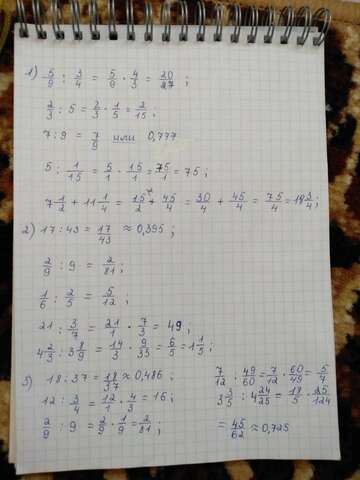 1) 5/9 : 3/4 = 5/9 · 4/3 = 20/27 ;
2/3 : 5 = 2/3 · 1/5 = 2/15 ;
7 : 9 = 7/9 или 0,777
5 : 1/15 = 5/1 · 15/1 = 75/1 = 75 ;
7 1/2 + 11 1/4 = 15/2 + 45/4 = 30/4 + 45/4 = 75/4 = 18 3/4 ;
2) 17 : 43 = 17/43 ≈ 0,395 ;
2/9 : 9 = 2/81 ;
1/6 : 2/5 = 5/12 ;
21 : 3/7 = 21/1 · 7/3 = 49 ;
4 2/3 : 3 8/9 = 14/3 · 9/35 = 6/5 = 1 1/5 ;
3) 18 : 37 = 18/37 ≈ 0,486 ;
12 : 3/4 = 12/1 · 4/3 = 16 ;
2/9 : 9 = 2/9 · 1/9 = 2/81 ;
7/12 : 49/60 = 7/12 · 60/49 = 5/7
3 3/5 : 4 24/25 = 18/5 · 25/124
= 45/62 ≈ 0,725